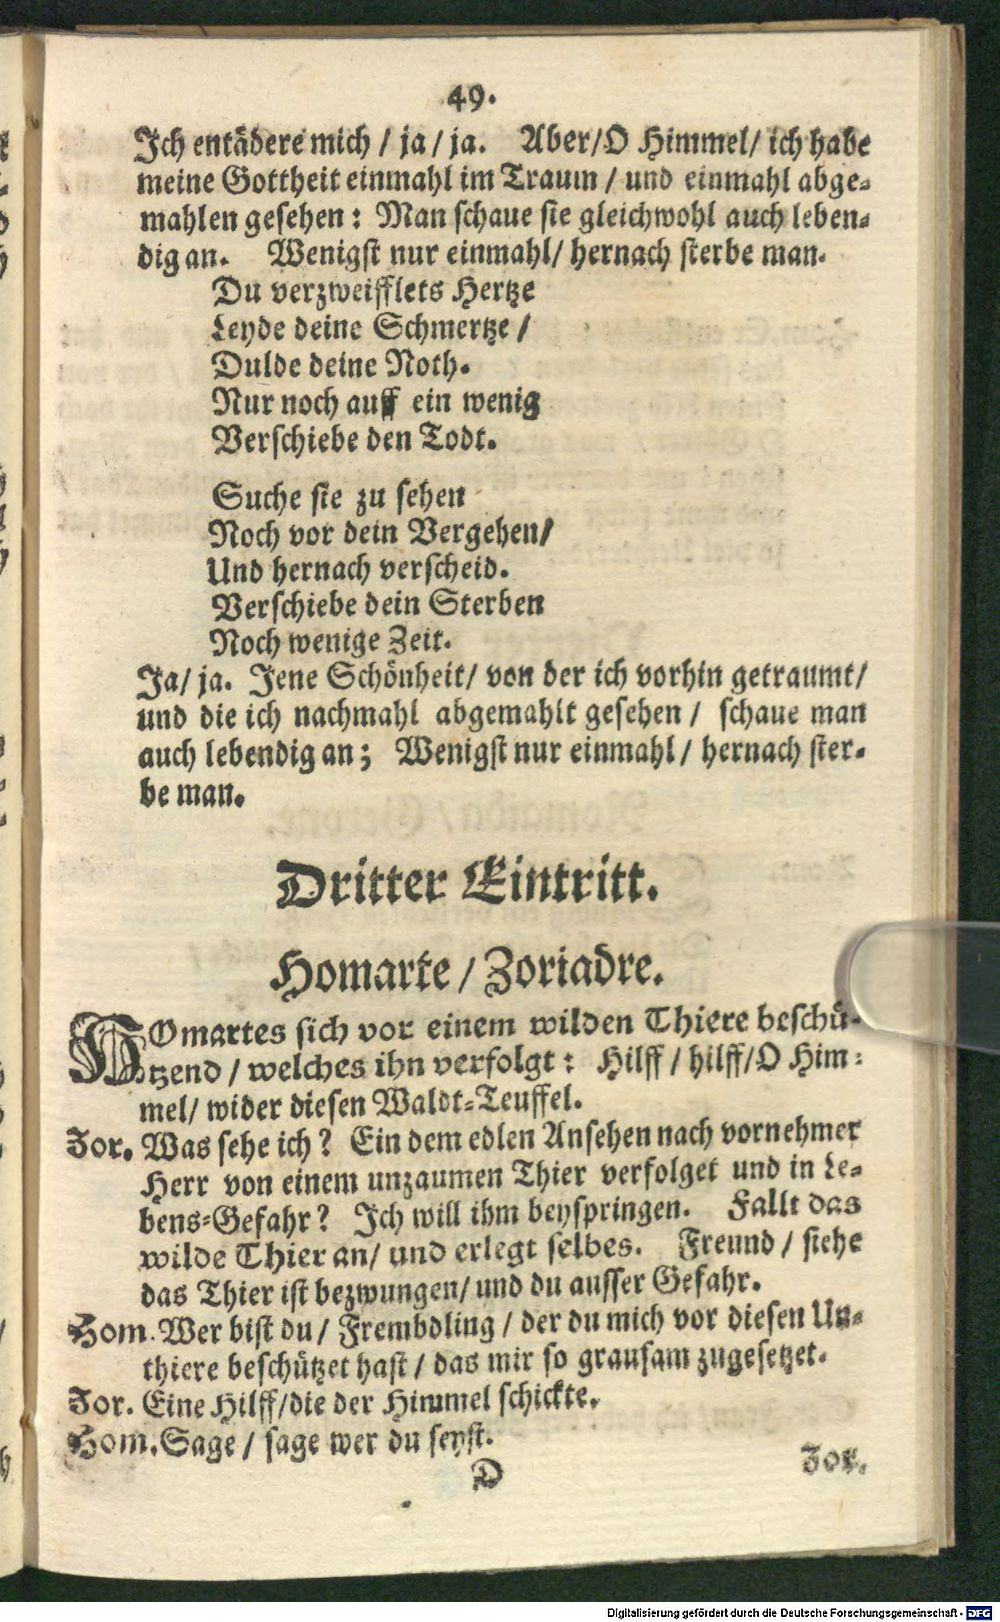 49.
Ich entädere mich / ja / ja. Aber/O Himmel/ ich habe
meine Gottheit einmahl im Traum / und einmahl abge-
mahlen gesehen: Man schaue sie gleichwohl auch leben-
dig an. Wenigst nur einmahl/ hernach sterbe man.
Du verzweifflets Hertze
Leyde deine Schmertze /
Dulde deine Noth.
Nur noch auff ein wenig
Verschiebe den Todt.
Suche sie zu sehen
Noch vor dein Vergehen/
Und hernach verscheid.
Verschiebe dein Sterben
Noch wenige Zeit.
Ja/ ja. Jene Schönheit/ von der ich vorhin getraumt/
und die ich nachmahl abgemahlt gesehen / schaue man
auch lebendig an; Wenigst nur einmahl / hernach ster-
be man.
Dritter Eintritt.
Homarte / Zoriadre.
HOmartes sich vor einem wilden Thiere beschü-
tzend / welches ihn verfolgt: Hilff / hilff/O Him-
mel/ wider diesen Waldt-Teuffel.
Zor. Was sehe ich? Ein dem edlen Ansehen nach vornehmer
Herr von einem unzaumen Thier verfolget und in Le-
bens-Gefahr? Ich will ihm beyspringen. Fallt das
wilde Thier an/ und erlegt selbes. Freund / siehe
das Thier ist bezwungen/ und du ausser Gefahr.
Hom. Wer bist du/ Frembdling / der du mich vor diesen Un-
thiere beschützet hast / das mir so grausam zugesetzet.
Zor. Eine Hilff/die der Himmel schickte.
Hom. Sage / sage wer du seyst.
D Zor.
Digitalisierung gefördert durch die Deutsche Forschungsgemeinschaft - DFG